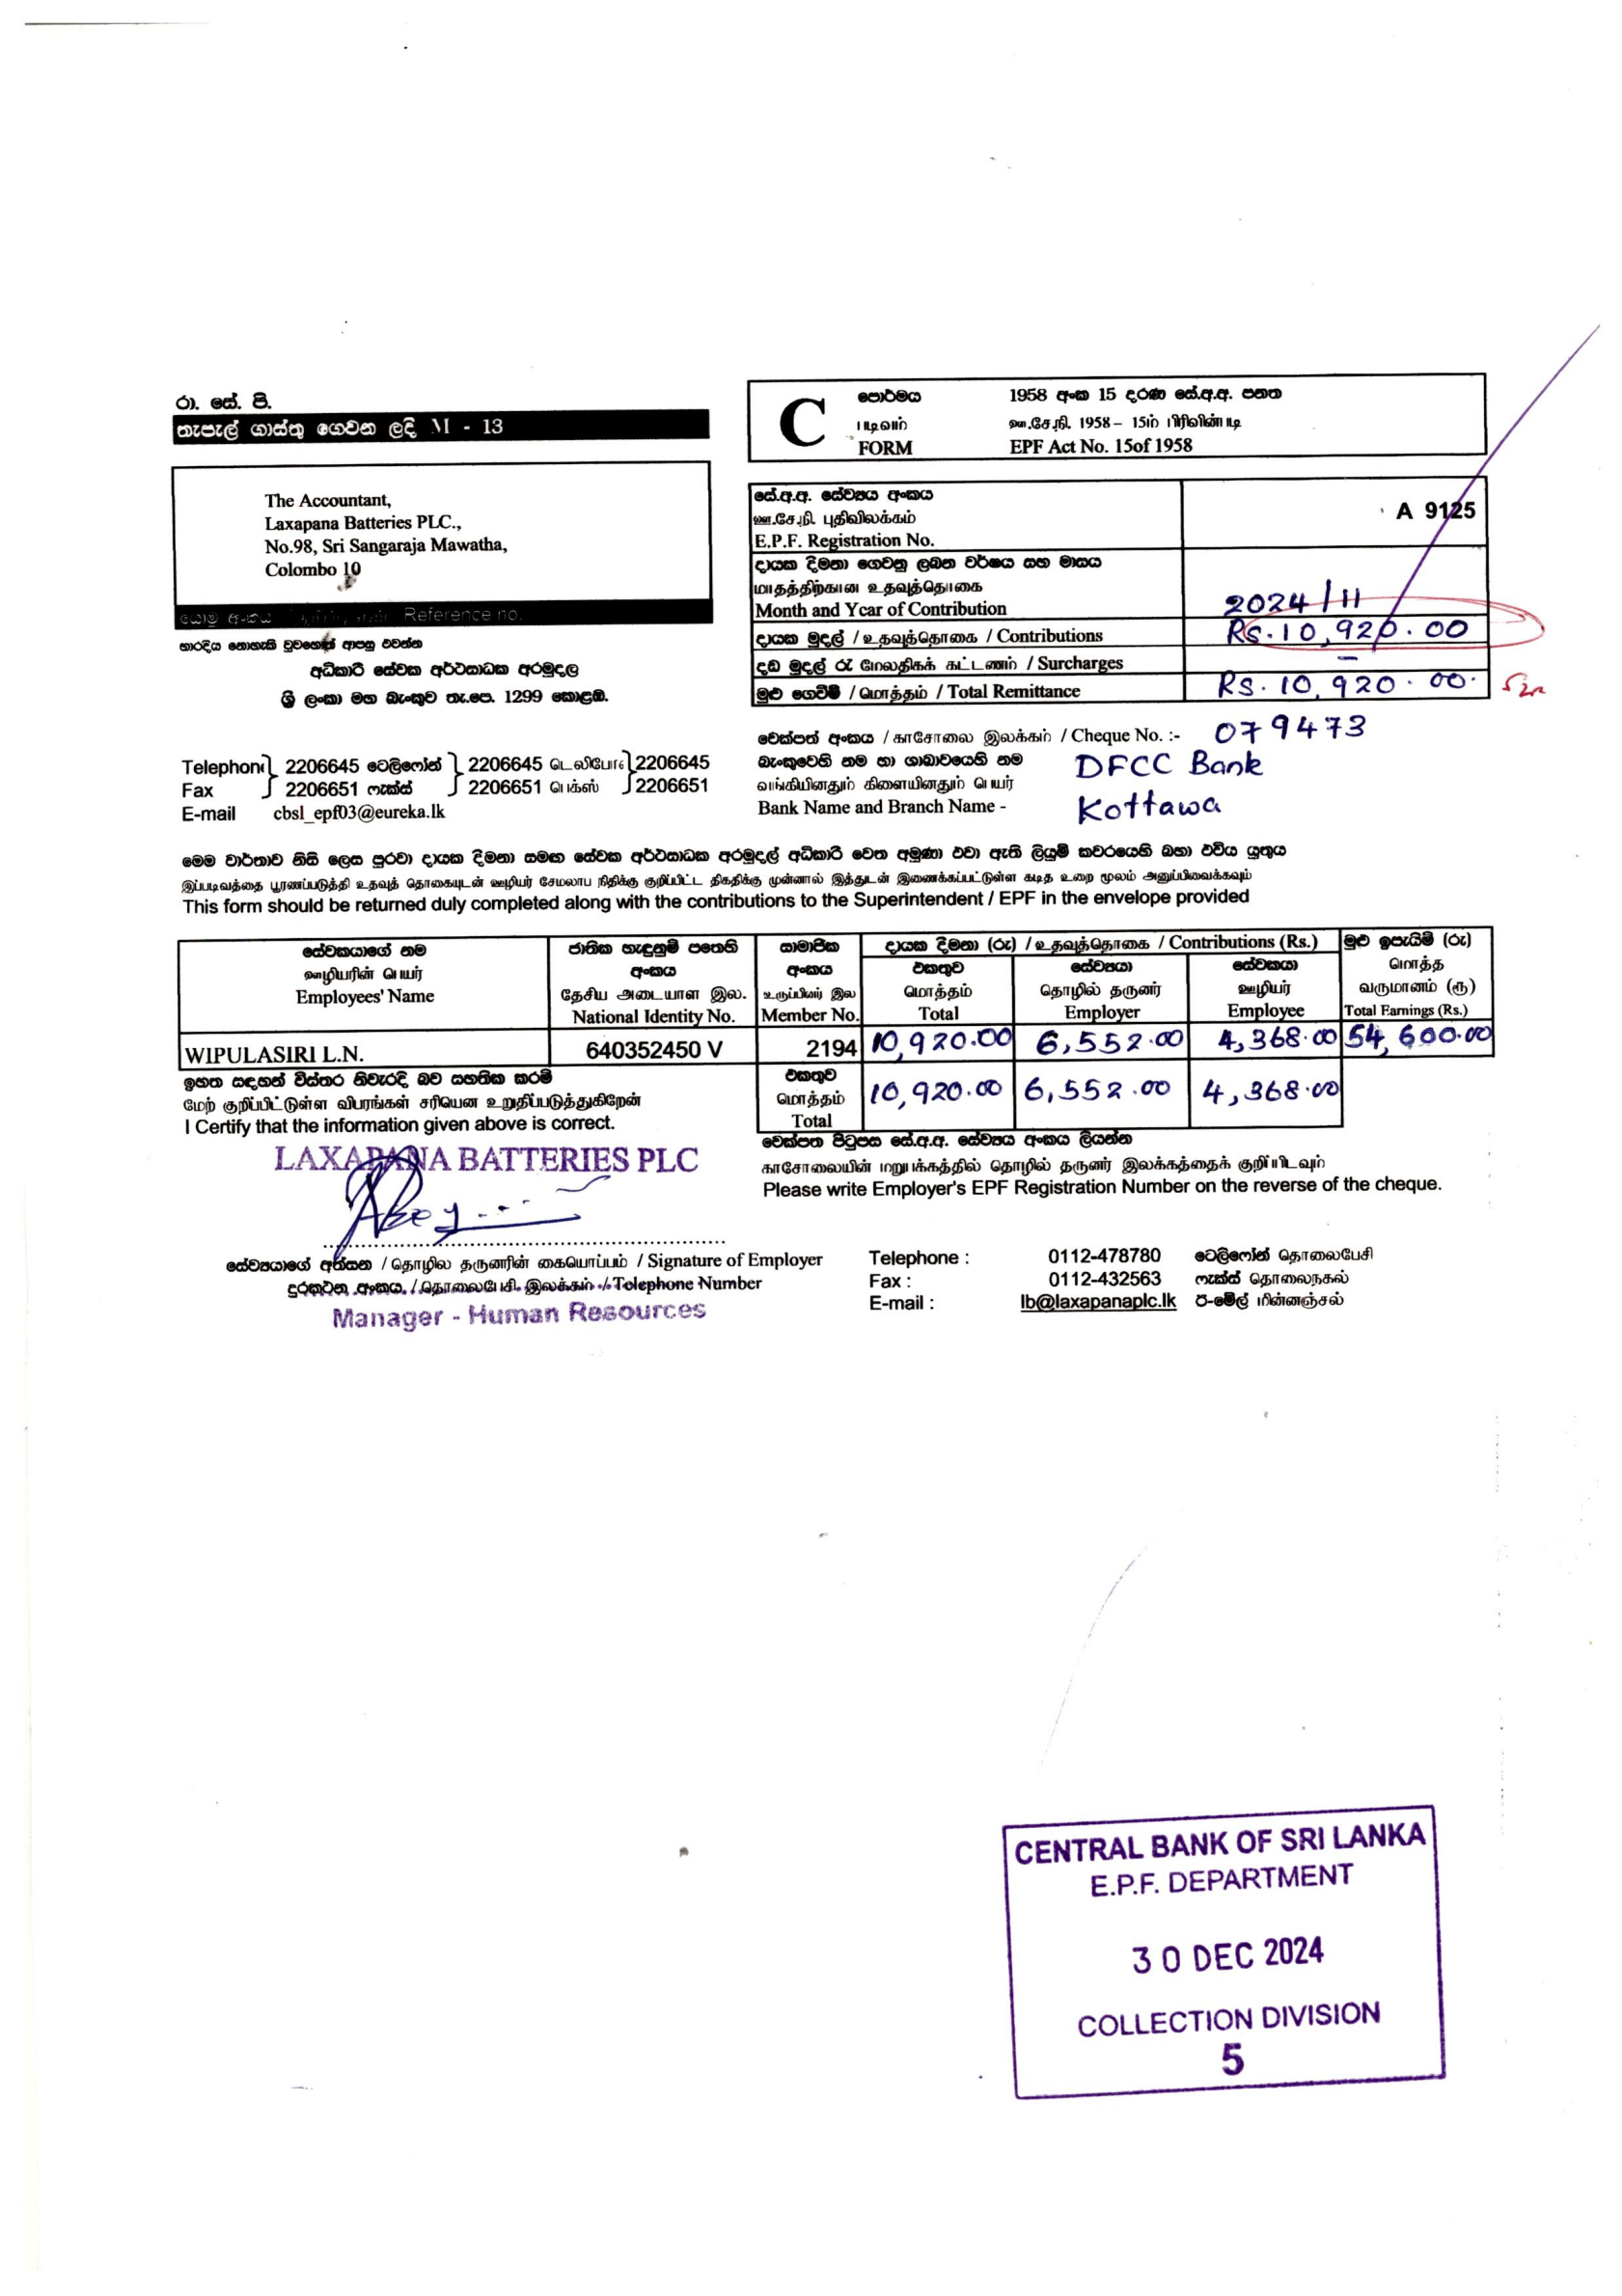 රා. සේ. පි.
තැපැල් ගාස්තු ගෙවන ලදි M - 13
The Accountant,
Laxapana Batteries PLC.,
No.98, Sri Sangaraja Mawatha,
Colombo 10
යොමු අංකය Reference no.
භාරදිය නොහැකි වුවහොත් ආපසු එවන්න
අධිකාරී සේවක අර්ථසාධක අරමුදල
ශ්‍රී ලංකා මහ බැංකුව තැ.පෙ. 1299 කොළඹ.
Telephone 2206645 ටෙලිෆෝන් 2206645 டெலிபோன் 2206645
Fax 2206651 ෆැක්ස් 2206651 பெக்ஸ் 2206651
E-mail cbsl_epf03@eureka.lk
C
පෝර්මය 1958 අංක 15 දරණ සේ.අ.අ. පනත
படிவம் ஊ.சே.நி. 1958 – 15ம் பிரிவின் படி
FORM EPF Act No. 15of 1958
සේ.අ.අ. සේව්‍යය අංකය
ஊ.சே.நி. புதிவிலக்கம்
E.P.F. Registration No.
A 9125
දායක දීමනා ගෙවනු ලබන වර්ෂය සහ මාසය
மாதத்திற்கான உதவுத்தொகை
Month and Year of Contribution 2024/11
දායක මුදල් / உதவுத்தொகை / Contributions Rs. 10,920.00
දඩ මුදල් රු மேலதிகக் கட்டணம் / Surcharges –
මුළු ගෙවීම් / மொத்தம் / Total Remittance Rs. 10,920.00.
චෙක්පත් අංකය / காசோலை இலக்கம் / Cheque No. :- 079473
බැංකුවෙහි නම හා ශාඛාවයෙහි නම DFCC Bank
வங்கியினதும் கிளையினதும் பெயர்
Bank Name and Branch Name - Kottawa
මෙම වාර්තාව නිසි ලෙස පුරවා දායක දීමනා සමඟ සේවක අර්ථසාධක අරමුදල් අධිකාරී වෙත අමුණා එවා ඇති ලියුම් කවරයෙහි බහා එවිය යුතුය
இப்படிவத்தை பூரணப்படுத்தி உதவுத் தொகையுடன் ஊழியர் சேமலாப நிதிக்கு குறிப்பிட்ட திகதிக்கு முன்னால் இத்துடன் இணைக்கப்பட்டுள்ள கடித உறை மூலம் அனுப்பிவைக்கவும்
This form should be returned duly completed along with the contributions to the Superintendent / EPF in the envelope provided
සේවකයාගේ නම
ஊழியரின் பெயர்
Employees' Name
ජාතික හැඳුනුම් පතෙහි
අංකය
தேசிய அடையாள இல.
National Identity No.
සාමාජික
අංකය
உருப்பினர் இல
Member No.
දායක දීමනා (රු) / உதவுத்தொகை / Contributions (Rs.)
එකතුව
மொத்தம்
Total
සේව්‍යයා
தொழில் தருனர்
Employer
සේවකයා
ஊழியர்
Employee
මුළු ඉපැයීම් (රු)
மொத்த
வருமானம் (ரூ)
Total Earnings (Rs.)
WIPULASIRI L.N. 640352450 V 2194 10,920.00 6,552.00 4,368.00 54,600.00
එකතුව
மொத்தம்
Total
10,920.00 6,552.00 4,368.00
ඉහත සඳහන් විස්තර නිවැරදි බව සහතික කරමි
மேற் குறிப்பிட்டுள்ள விபரங்கள் சரியென உறுதிப்படுத்துகிறேன்
I Certify that the information given above is correct.
LAXAPANA BATTERIES PLC
චෙක්පත පිටුපස සේ.අ.අ. සේව්‍යය අංකය ලියන්න
காசோலையின் மறுபக்கத்தில் தொழில் தருனர் இலக்கத்தைக் குறிப்பிடவும்
Please write Employer's EPF Registration Number on the reverse of the cheque.
සේව්‍යයාගේ අත්සන / தொழில தருனரின் கையொப்பம் / Signature of Employer
දුරකථන අංකය / தொலைபேசி இலக்கம் / Telephone Number
Manager - Human Resources
Telephone : 0112-478780 ටෙලිෆෝන් தொலைபேசி
Fax : 0112-432563 ෆැක්ස් தொலைநகல்
E-mail : lb@laxapanaplc.lk ඊ-මේල් மின்னஞ்சல்
CENTRAL BANK OF SRI LANKA
E.P.F. DEPARTMENT
30 DEC 2024
COLLECTION DIVISION
5